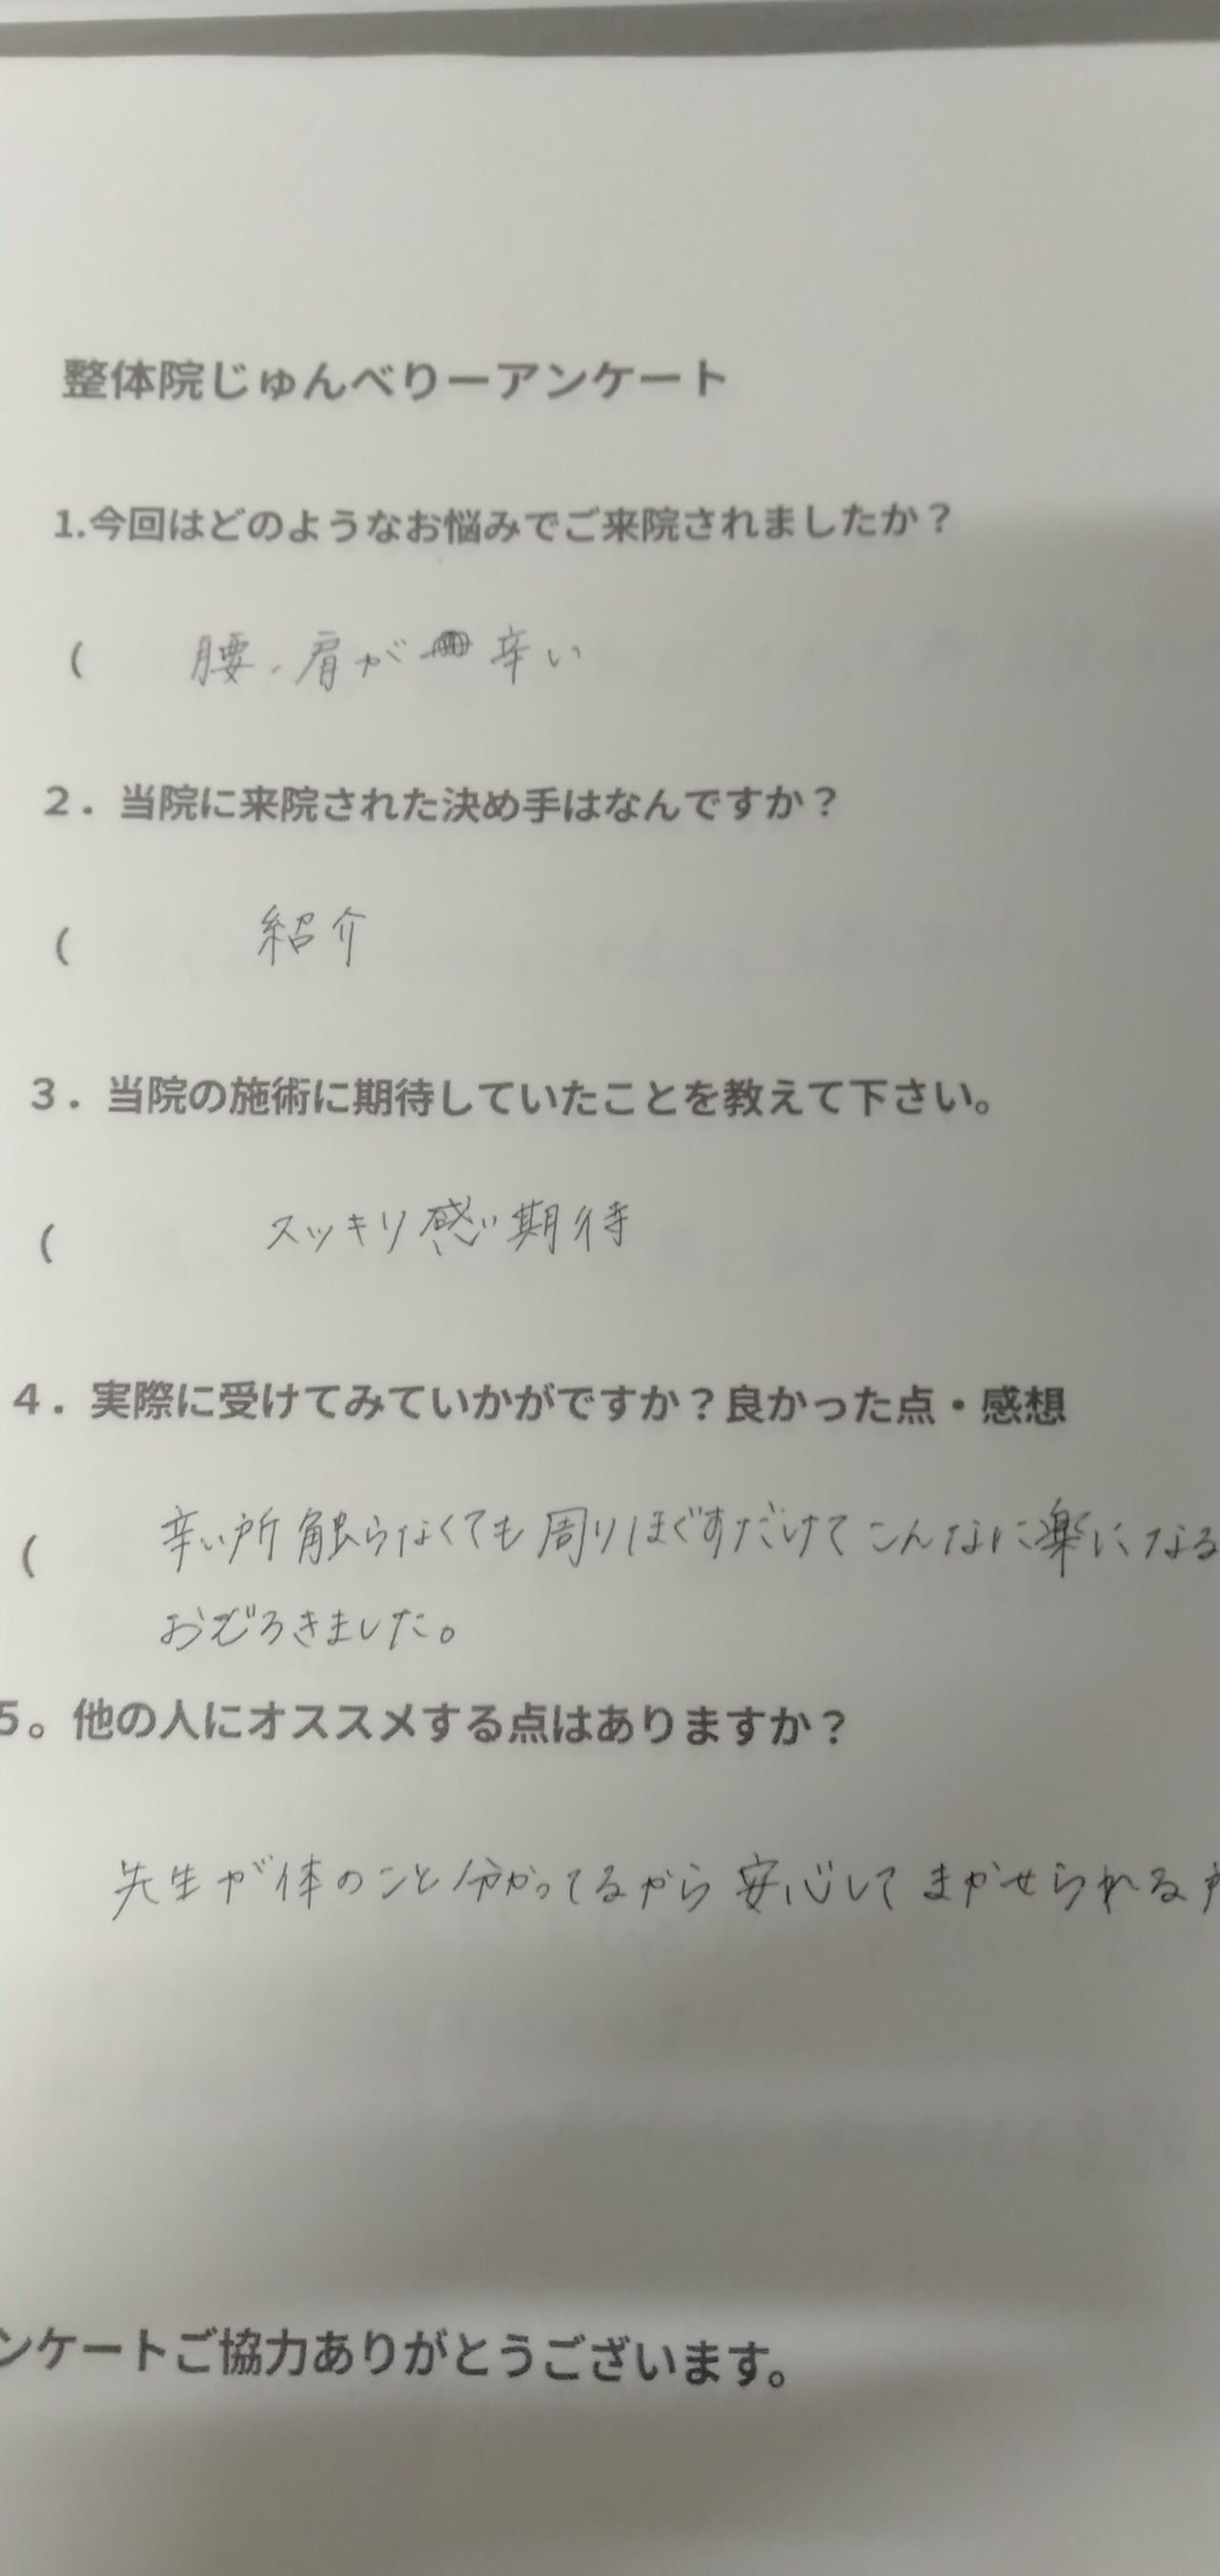 整体院じゅんべりーアンケート
1.今回はどのようなお悩みでご来院されましたか？
( 腰、肩が 辛い
２．当院に来院された決め手はなんですか？
( 紹介
３．当院の施術に期待していたことを教えて下さい。
( スッキリ感い期待
４．実際に受けてみていかがですか？良かった点・感想
( 辛い所触らなくても周りほぐすだけでこんなに楽になる
おどろきました。
5。他の人にオススメする点はありますか？
先生が体のこと分かってるから安心してまかせられる
ンケートご協力ありがとうございます。